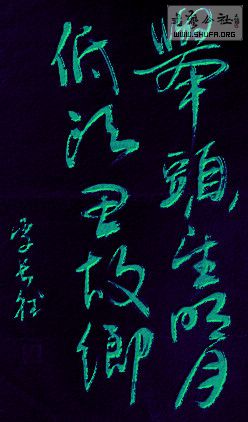 舉頭望明月
低頭思故鄉
書藝公社
WWW.SHUFA.ORG